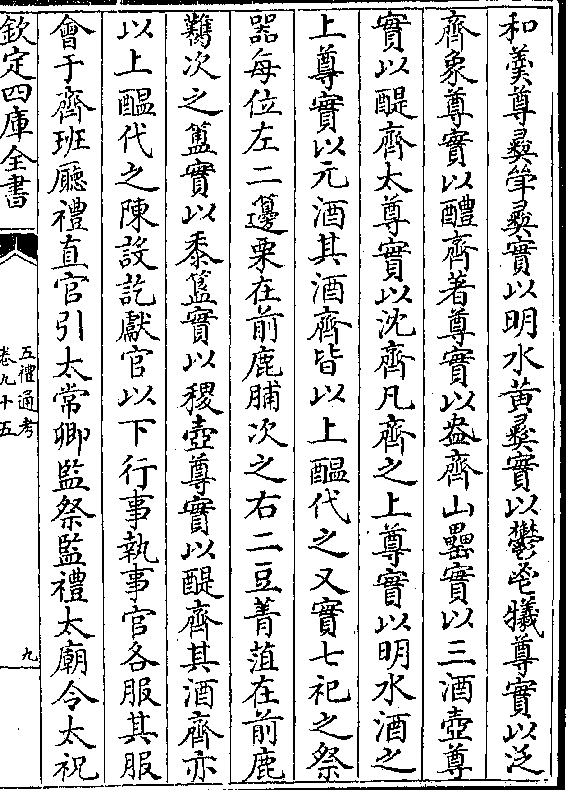 和羹尊彛斝彛實以明水黄彛實以鬱鬯犧尊實以泛
齊象尊實以醴齊著尊實以盎齊山罍實以三酒壺尊
實以醍齊太尊實以沈齊凡齊之上尊實以明水酒之
上尊實以元酒其酒齊皆以上醖代之又實七祀之祭
器每位左二籩栗在前鹿脯次之右二豆菁菹在前鹿
鸈次之簠實以黍簋實以稷壺尊實以醍齊其酒齊亦
以上醖代之陳設訖獻官以下行事執事官各服其服
會于齊班廳禮直官引太常卿監祭監禮太廟令太祝
欽定四庫全書
五禮通考
卷九十五
九